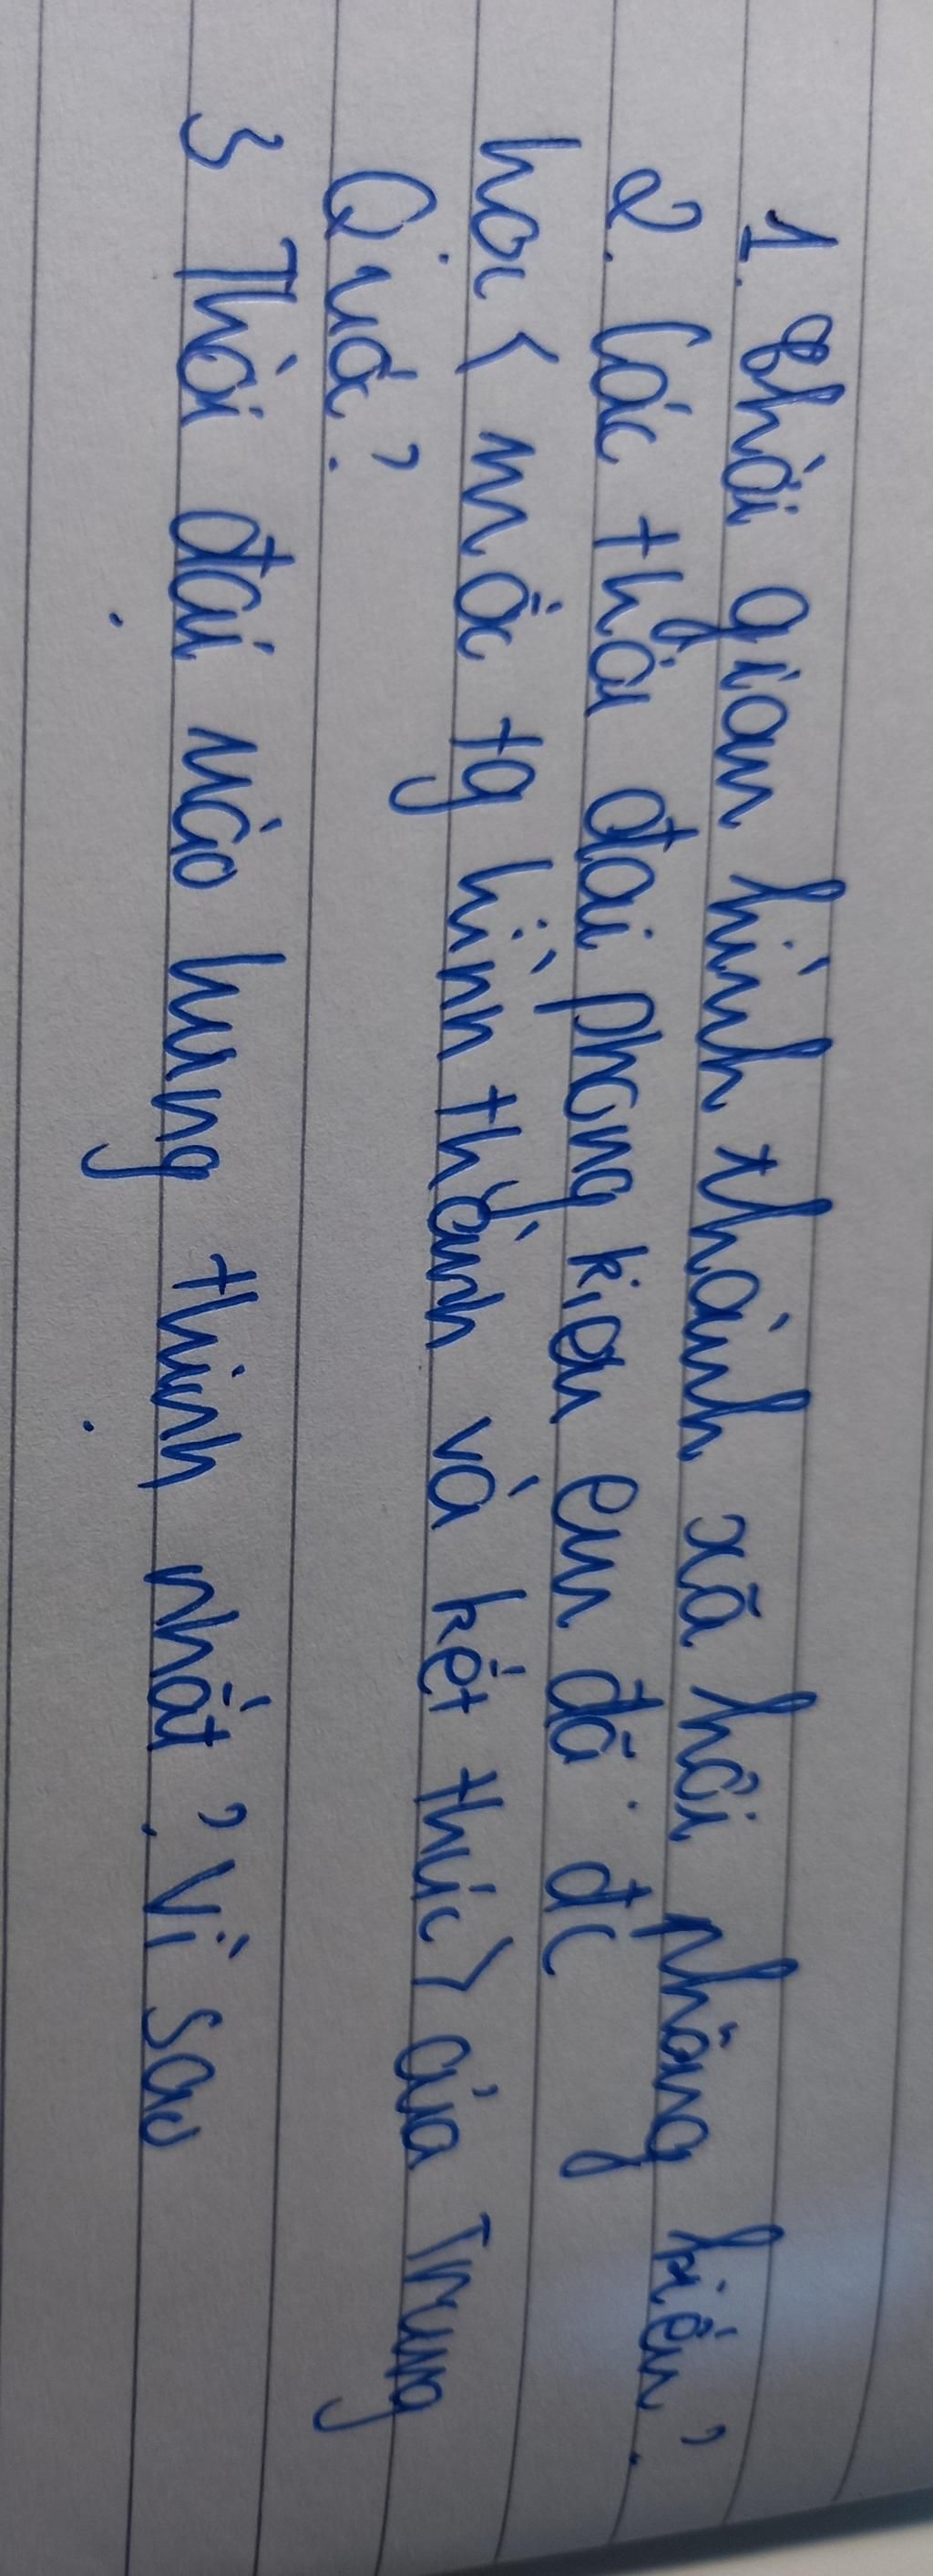 1. Thời gian hình thành xã hôi phong kiến?
2. Các thời đai phong kiến em đã đc
hoc < mốc tg hình thành và kết thúc> của Trung
Quốc?
3 Thời đại nào hưng thịnh nhất? Vì sao